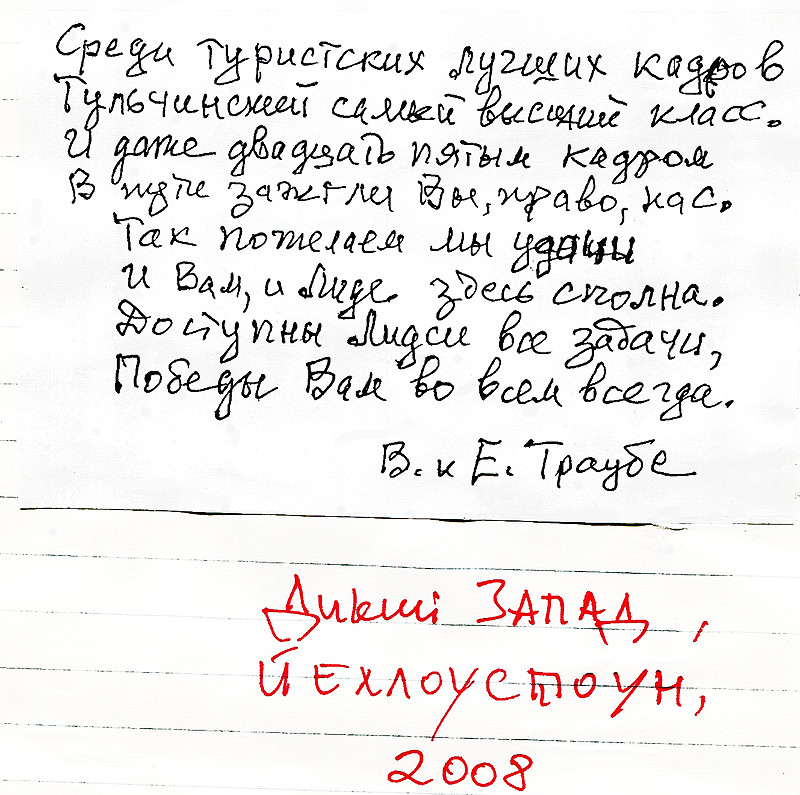 Среди туристских лучших кадров
Тульчинский самый высший класс.
И даже двадцать пятым кадром
В пути зажгли Вы, право, нас.
Так пожелаем мы удачи
И Вам, и Лиде здесь сполна.
Доступны Лидси все задачи,
Победы Вам во всем всегда.
В. и Е. Траубе
Дикий ЗАПАД,
ЙЕХЛОУСТОУН,
2008